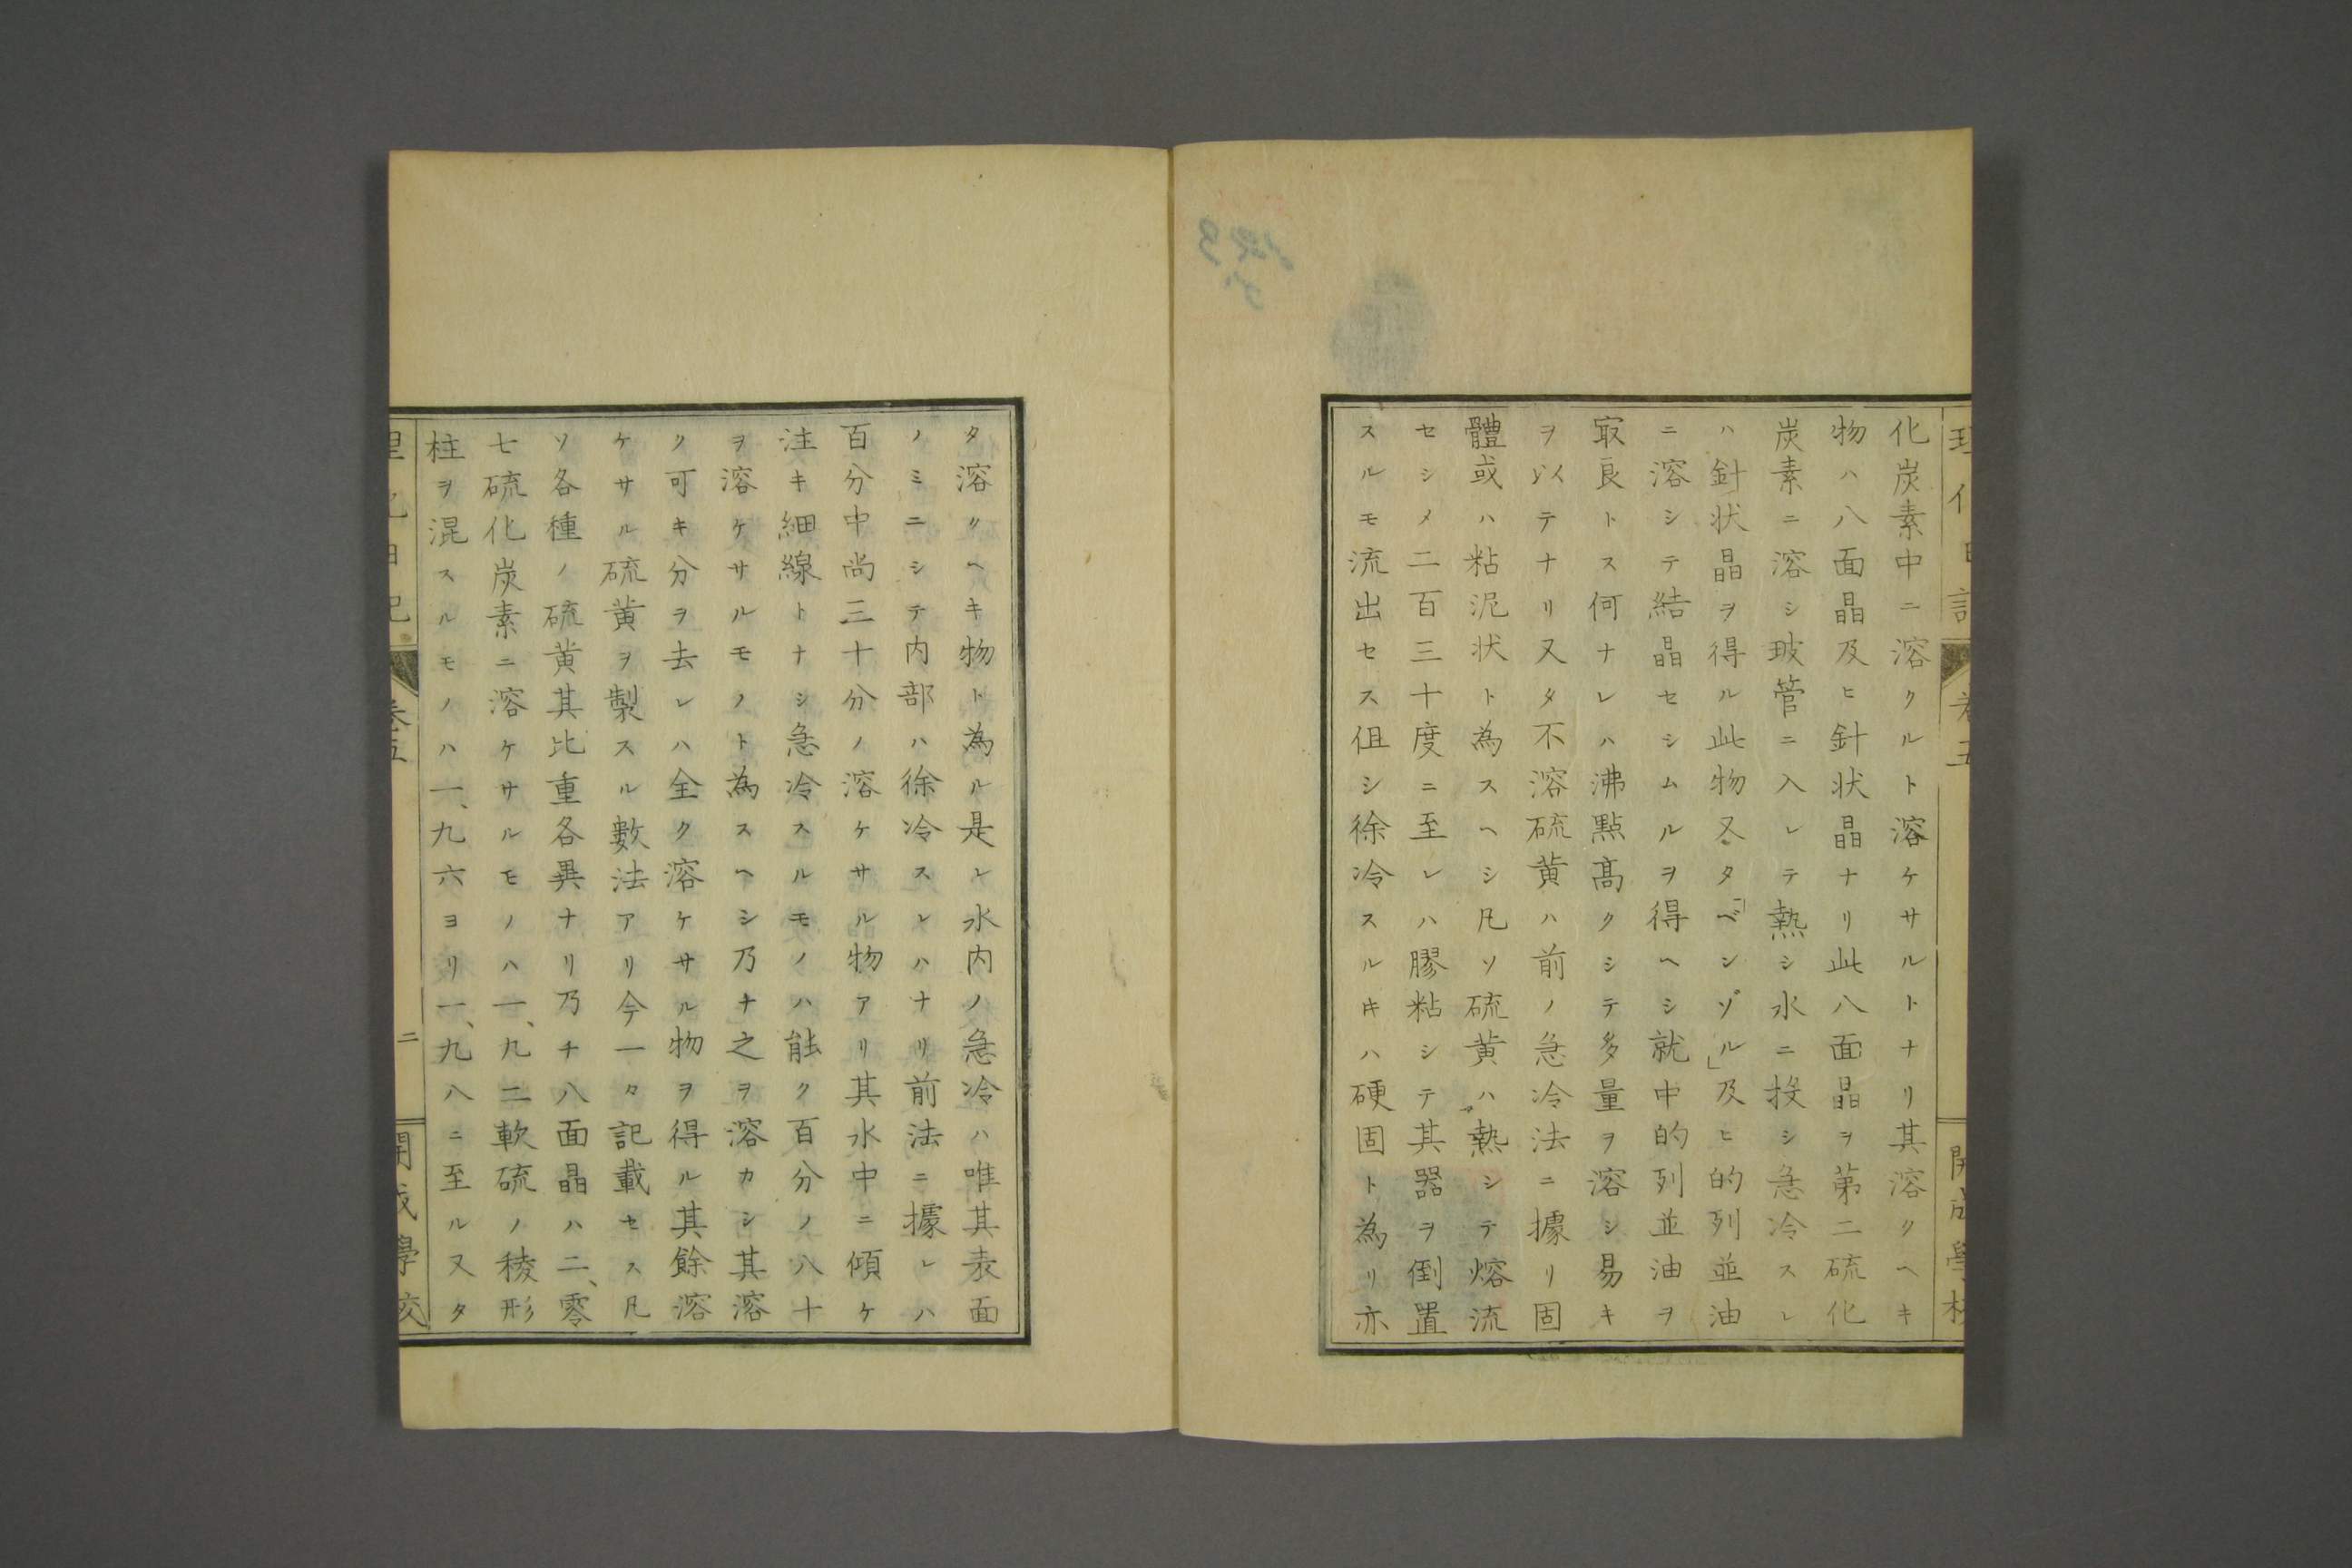 化炭素中ニ溶クルト溶ケサルトナリ其溶クヘキ
物ハ八面晶及ヒ針状晶ナリ此八面晶ヲ苐二硫化
炭素ニ溶シ玻管ニ入レテ熱シ水ニ投シ急冷スレ
ハ針状晶ヲ得ル此物又タ「ベンゾル」及ヒ的列並油
ニ溶シテ結晶セシムルヲ得ヘシ就中的列並油ヲ
㝡良トス何ナレハ沸點高クシテ多量ヲ溶シ易キ
ヲ以テナリ又タ不溶硫黄ハ前ノ急冷法ニ據リ固
體或ハ粘泥状ト為スヘシ凡ソ硫黄ハ熱シテ熔流
セシメ二百三十度ニ至レハ膠粘シテ其器ヲ倒置
スルモ流出セス伹シ徐冷スルキハ硬固ト為リ亦
タ溶クヘキ物ト為ル是レ水内ノ急冷ハ唯其表面
ノミニシテ内部ハ徐冷スレハナリ前法ニ據レハ
百分中尚三十分ノ溶ケサル物アリ其水中ニ傾ケ
注キ細線トナシ急冷スルモノハ能ク百分ノ八十
ヲ溶ケサルモノト為スヘシ乃ナ之ヲ溶カシ其溶
ク可キ分ヲ去レハ全ク溶ケサル物ヲ得ル其餘溶
ケサル硫黄ヲ製スル數法アリ今一々記載セス凡
ソ各種ノ硫黄其比重各異ナリ乃チ八面晶ハ二、零
七硫化炭素ニ溶ケサルモノハ一、九二軟硫ノ稜形
柱ヲ混スルモノハ一、九六ヨリ一、九八ニ至ル又タ
卷五
二
開成學校